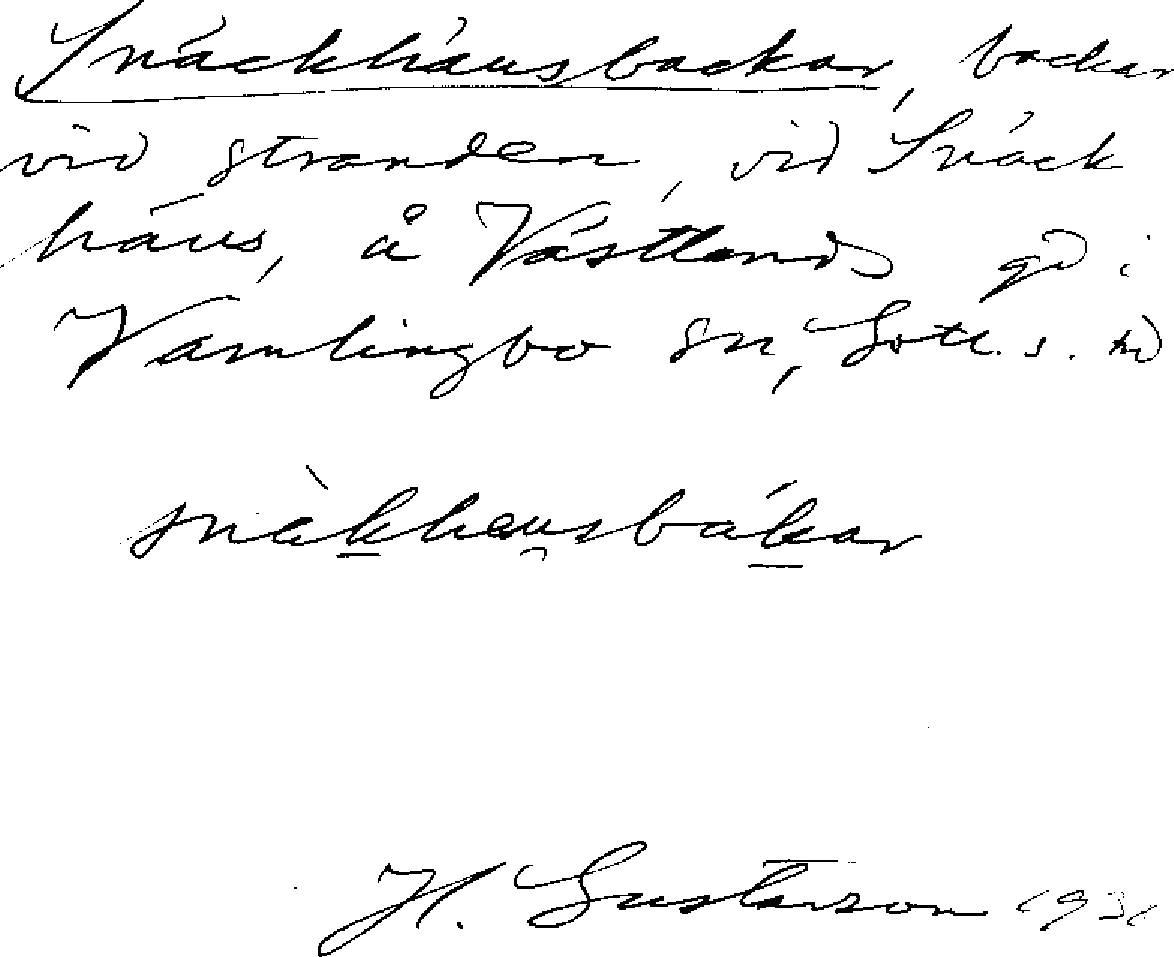 Snäckhäusbackar, backar
vid stranden, vid Snäck
häus, å Västlands gd i
Vamlingbo sn, Gotl. s. hd
snàkhausbákar
H. Gustavson 1931